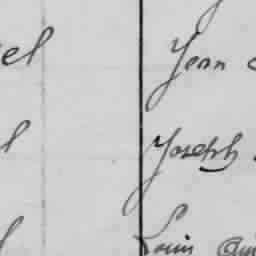 el Jean
l Joseph
l Louis